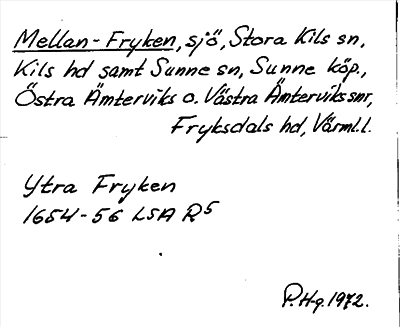 Mellan-Fryken, sjö, Stora Kils sn,
Kils hd samt Sunne sn, Sunne köp.,
Östra Ämterviks o. Västra Ämterviks snr,
Fryksdals hd, Värml.l.
Ytra Fryken
1654-56 LSA R5
P.H-g. 1972.